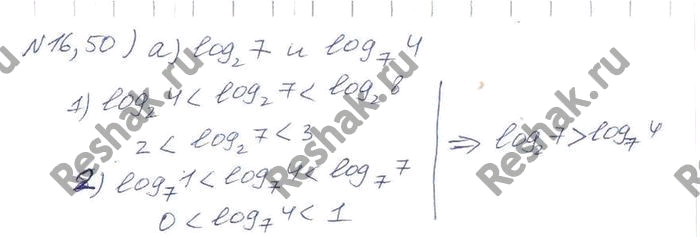 N16,50) а) log₂7 и log₇4
1) log₂4 < log₂7 < log₂8
2 < log₂7 < 3
2) log₇1 < log₇4 < log₇7
0 < log₇4 < 1
⇒ log₂7 > log₇4
Reshak.ru
Reshak.ru
Reshak.ru
Reshak.ru